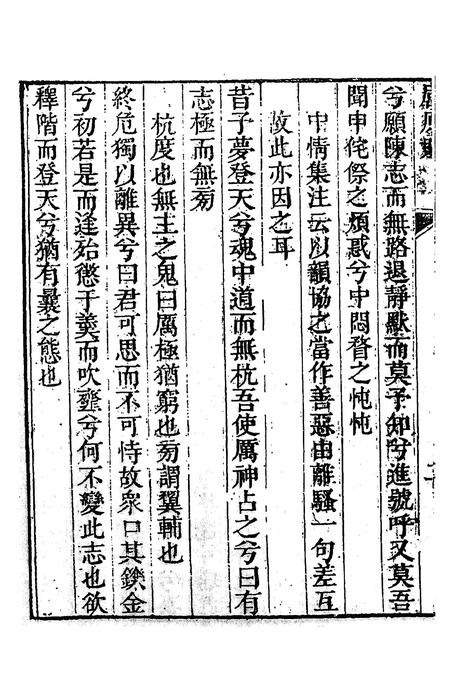 兮願陳志而無路退靜默而莫予知兮進號呼又莫吾
聞申侘傺之煩惑兮中悶瞀之忳忳
中情集注云以韻協之當作善惡由離騷一句差互
故此亦因之耳
昔予夢登天兮魂中道而無杭吾使厲神占之兮曰有
志極而無旁
杭度也無主之鬼曰厲極猶窮也旁謂翼輔也
終危獨以離異兮曰君可思而不可恃故衆口其鑠金
兮初若是而逢始懲于羹而吹虀兮何不變此志也欲
釋階而登天兮猶有曩之態也